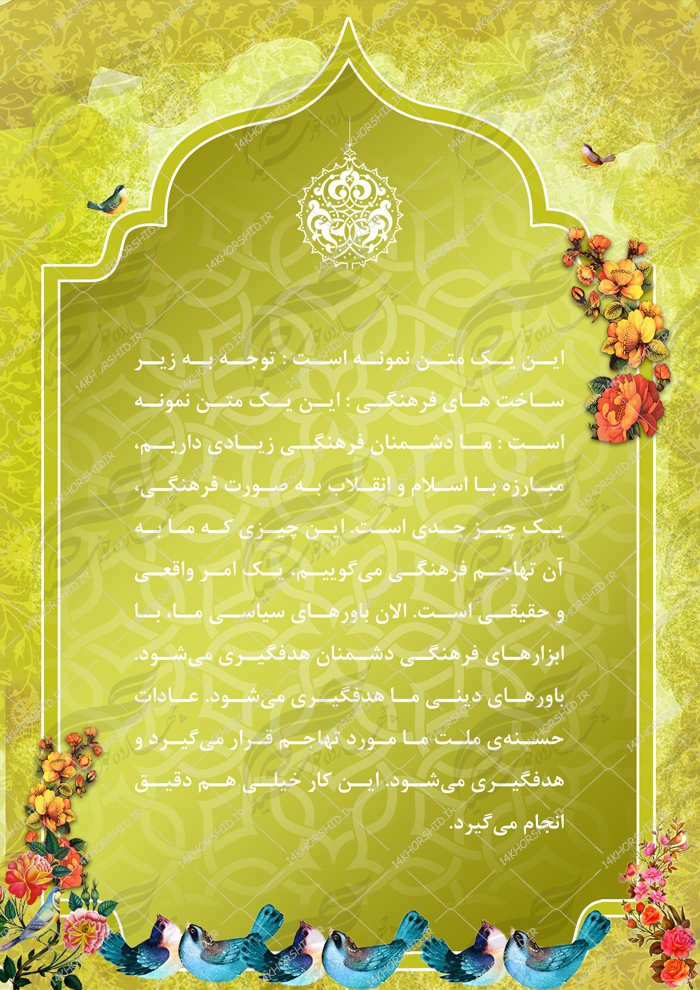 این یک متن نمونه است : توجه به زیر
ساخت های فرهنگی : این یک متن نمونه
است : ما دشمنان فرهنگی زیادی داریم،
مبارزه با اسلام و انقلاب به صورت فرهنگی،
یک چیز جدی است. این چیزی که ما به
آن تهاجم فرهنگی می‌گوییم، یک امر واقعی
و حقیقی است. الان باورهای سیاسی ما، با
ابزارهای فرهنگی دشمنان هدفگیری می‌شود.
باورهای دینی ما هدفگیری می‌شود. عادات
حسنه‌ی ملت ما مورد تهاجم قرار می‌گیرد و
هدفگیری می‌شود. این کار خیلی هم دقیق
انجام می‌گیرد.
14KHORSHID.IR